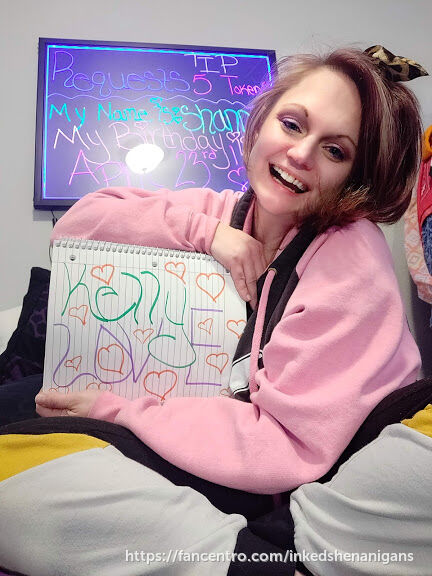 TIP
Requests 5 Token
My Name Is Shann
My Birthday is
April 23rd
Kenny
LOVE
https://fancentro.com/inkedshenanigans